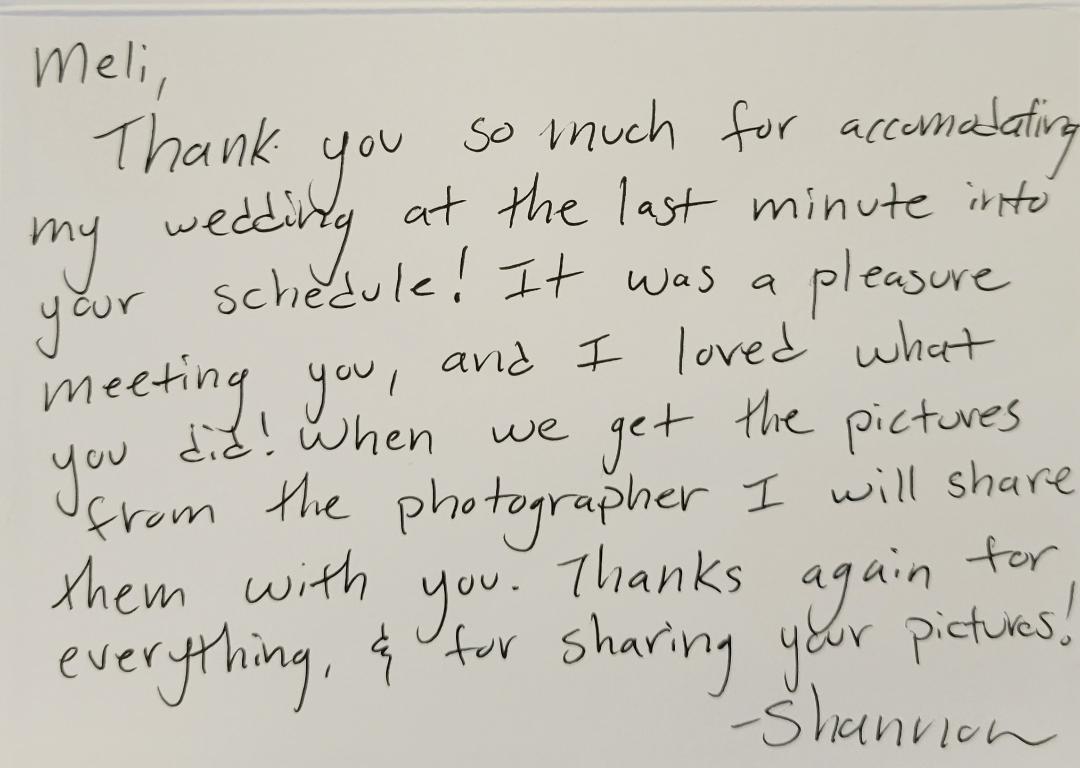 Meli,
Thank you so much for accomadating
my wedding at the last minute into
your schedule! It was a pleasure
meeting you, and I loved what
you did! When we get the pictures
from the photographer I will share
them with you. Thanks again for
everything, & for sharing your pictures!
-Shannon